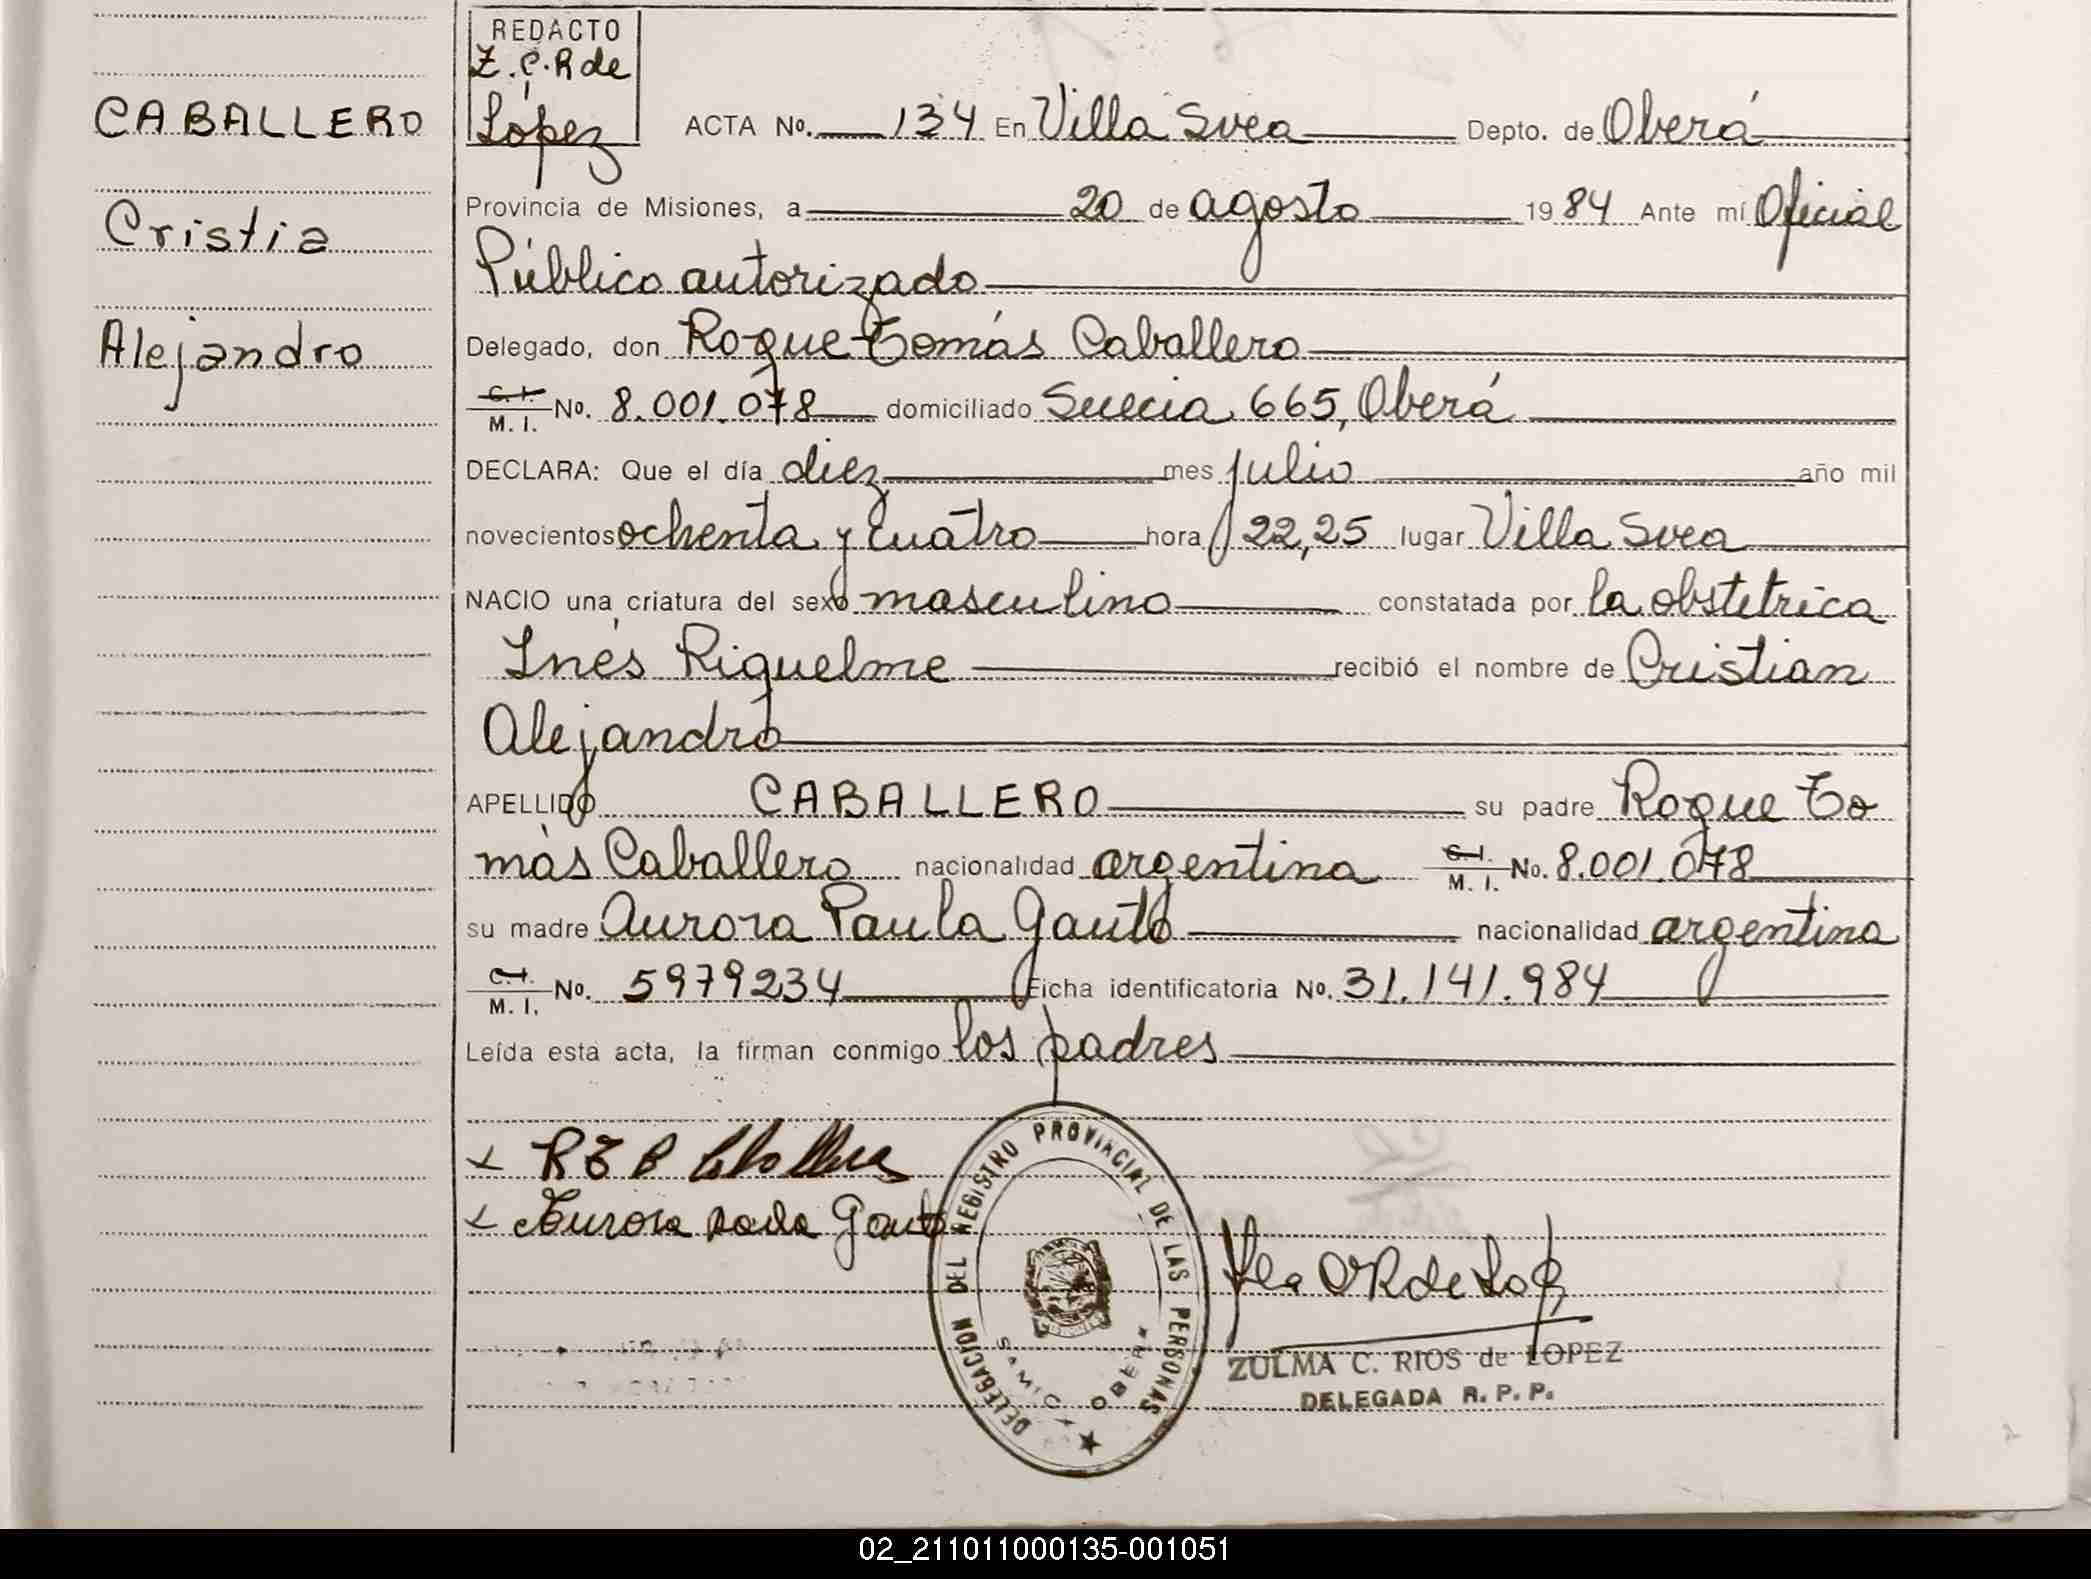 CABALLERO
Cristia
Alejandro
REDACTO
Z.C.R de
López
ACTA No. 134 En Villa Svea Depto. de Oberá
Provincia de Misiones, a 20 de agosto 1984 Ante mí Oficial
Público autorizado
Delegado, don Roque Tomás Caballero
C. I.
M. I. No. 8.001.078 domiciliado Suecia 665, Oberá
DECLARA: Que el día diez mes julio año mil
novecientos ochenta y cuatro hora 22,25 lugar Villa Svea
NACIO una criatura del sexo masculino constatada por la obstetrica
Inés Riquelme recibió el nombre de Cristian
Alejandro
APELLIDO CABALLERO su padre Roque To
más Caballero nacionalidad argentina C. I. M. I. No. 8.001.078
su madre Aurora Paula Gauto nacionalidad argentina
C. I.
M. I. No. 5979234 Ficha identificatoria No. 31.141.984
Leída esta acta, la firman conmigo los padres
Aurora Paula Gauto
DELEGACION DEL REGISTRO PROVINCIAL DE LAS PERSONAS
SAMIC OBERA
ZULMA C. RIOS de LOPEZ
DELEGADA R. P. P.
02_211011000135-001051